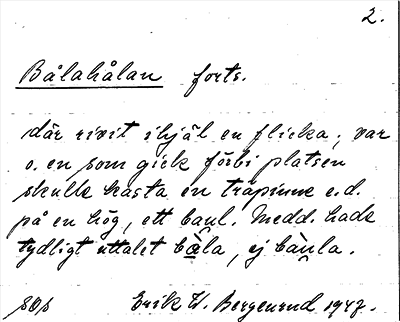 2.
Bålahålan forts.
där rivit ihjäl en flicka; var
o. en som gick förbi platsen
skulle kasta en träpinne e.d.
på en hög, ett bau̯l. Medd. hade
tydligt uttalet bå̀la, ej bàu̯la.
sos Erik H. Bergenrud 1947.